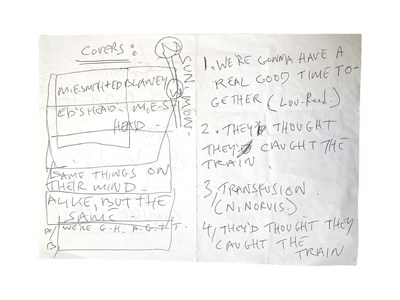 COVERS:
M.E.SMITH + ED BLANEY
ED'S HEAD - M.E.S
HEAD -
SUN / MOON -
SAME THINGS ON
THEIR MIND -
ALIKE, BUT THE
SAME -
A/ WE'RE G.H. A.G.T.T.
B/
1. WE'RE GONNA HAVE A
REAL GOOD TIME TO-
GETHER (LOU-Reed)
2. THEY'D THOUGHT
THEY'D CAUGHT THE
TRAIN.
3, TRANSFUSION
(N. NORVIS)
4, THEY'D THOUGHT THEY
CAUGHT THE
TRAIN